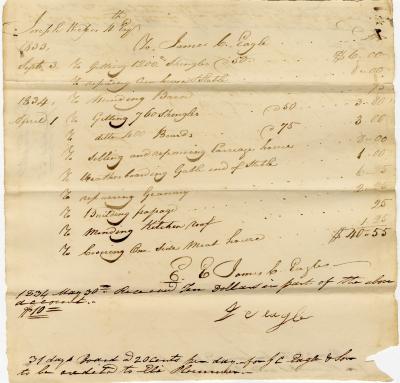 Joseph 4th Esq
1833. To James C. Eagle
Sept. 3 To Getting 1200 Shingles @ 50 $6.00
To repairing Corn house & Stable
1834. To Mending Barn 75
April 1 To Getting 760 Shingles @ 50 3.80
To ditto 400 Boards @ 75 3.00
To Selling and repairing Carriage house
To Weatherboarding Gable end of Stable 1.00
To repairing Granary
To Building
To Mending Kitchen roof 25
To Covering One Side Meat house 1.25
$40.55
E. E. James C. Eagle
1834 May 30th Received Ten Dollars in part of the above
account.
$10.00
J C Eagle
37 days Board @ 20 Cents per day for J C Eagle & Son
to be credited to the